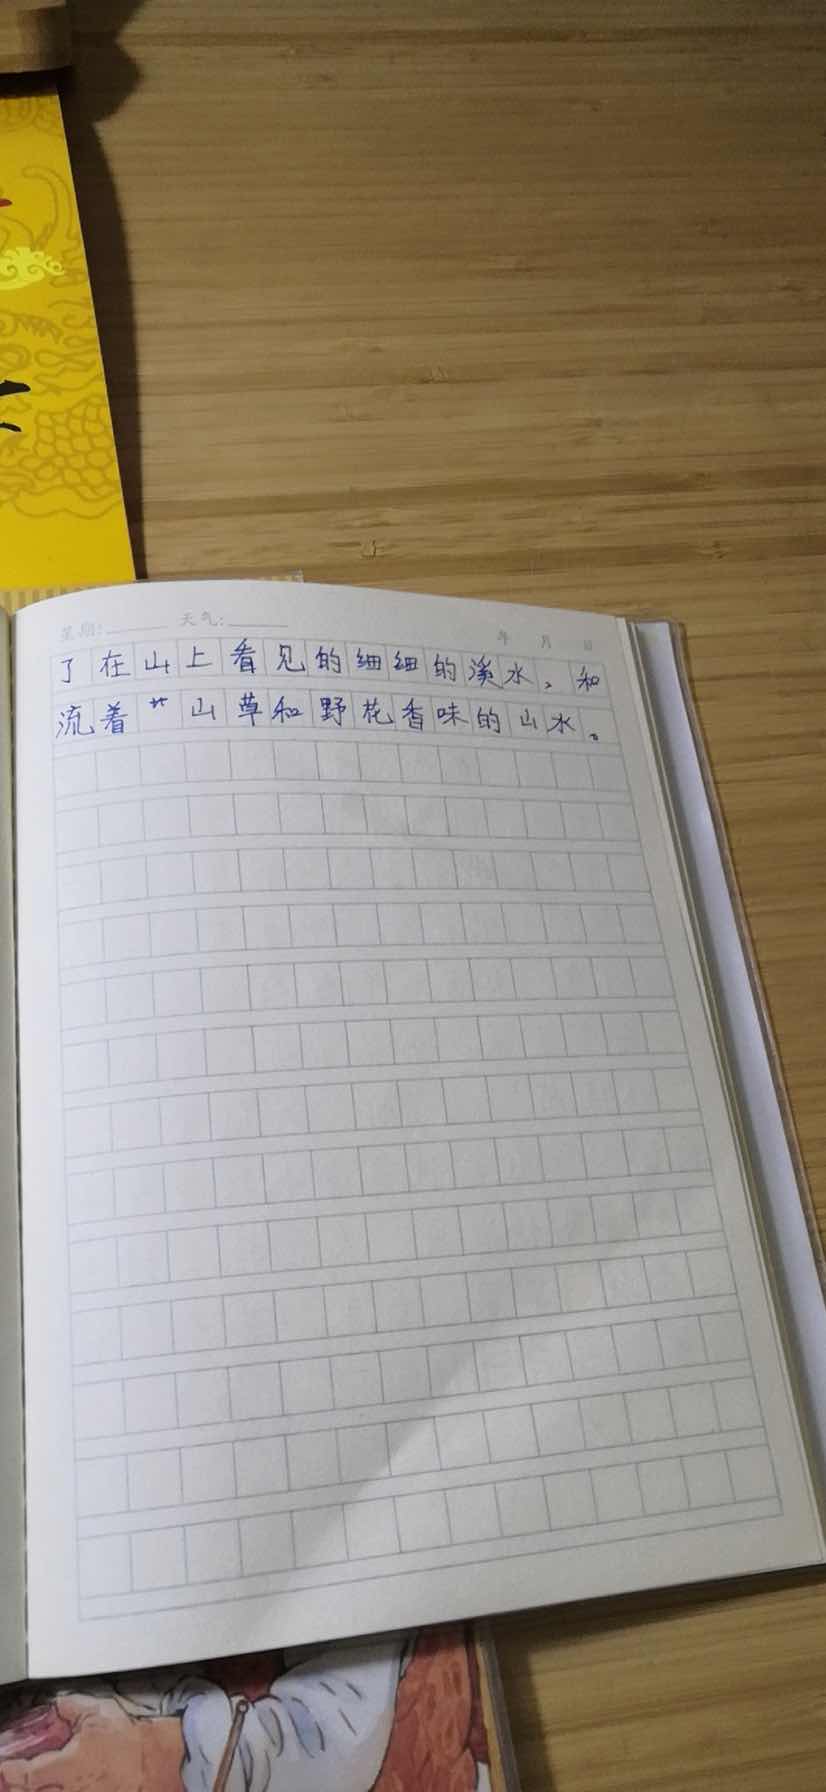 星期: 天气: 年 月 日
了在山上看见的细细的溪水，和
流着艹山草和野花香味的山水。